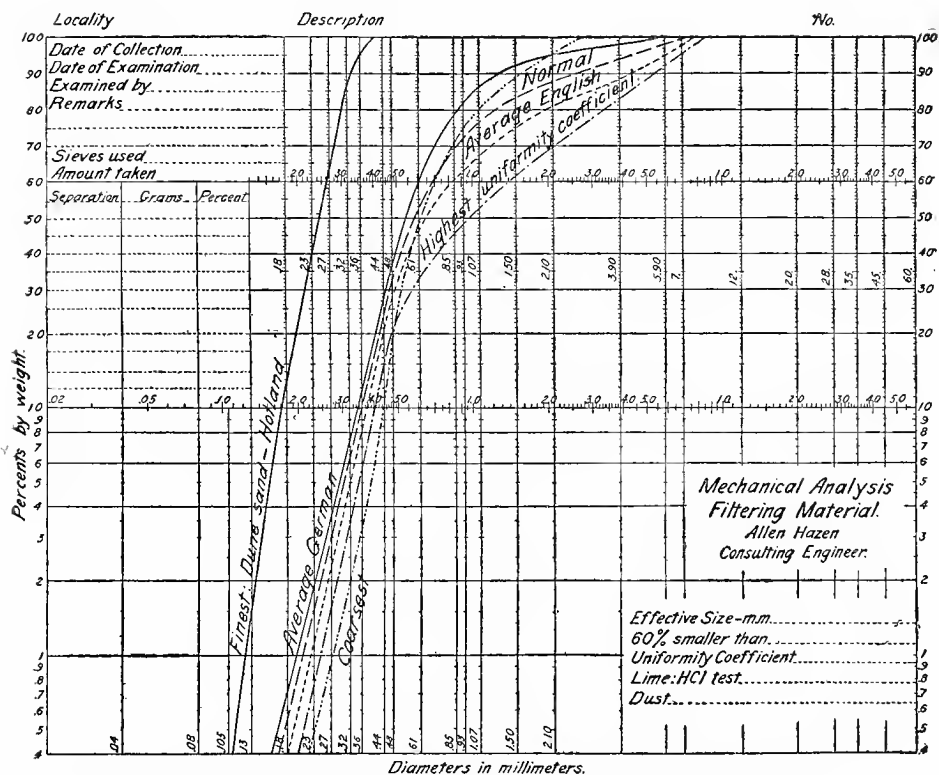 Locality Description No.
Date of Collection
Date of Examination
Examined by
Remarks
Sieves used
Amount taken
Separation Grams Percent
Percents by weight.
100
90
80
70
60
50
40
30
20
10
9
8
7
6
5
4
3
2
1
.9
.8
.7
.6
.5
.4
100
90
80
70
60
50
40
30
20
10
9
8
7
6
5
4
3
2
1
.9
.8
.7
.6
.5
.4
.20 .30 .40 .50 1.0 2.0 3.0 4.0 5.0 10. 20. 30. 40. 50.
.18 .23 .27 .32 .36 .44 .48 .61 .85 .93 1.07 1.50 2.10 3.90 5.90 7. 12. 20. 28. 35. 45. 60.
.02 .05 .10 .20 .30 .40 .50 1.0 2.0 3.0 4.0 5.0 10. 20. 30. 40. 50.
Normal
Average English
Highest uniformity coefficient
Finest: Dune sand-Holland
Average German
Coarsest
Mechanical Analysis
Filtering Material.
Allen Hazen
Consulting Engineer.
Effective Size-mm.
60% smaller than
Uniformity Coefficient
Lime: HCl test
Dust
.04 .08 .105 .13 .18 .23 .27 .32 .36 .44 .48 .61 .85 .93 1.07 1.50 2.10
Diameters in millimeters.